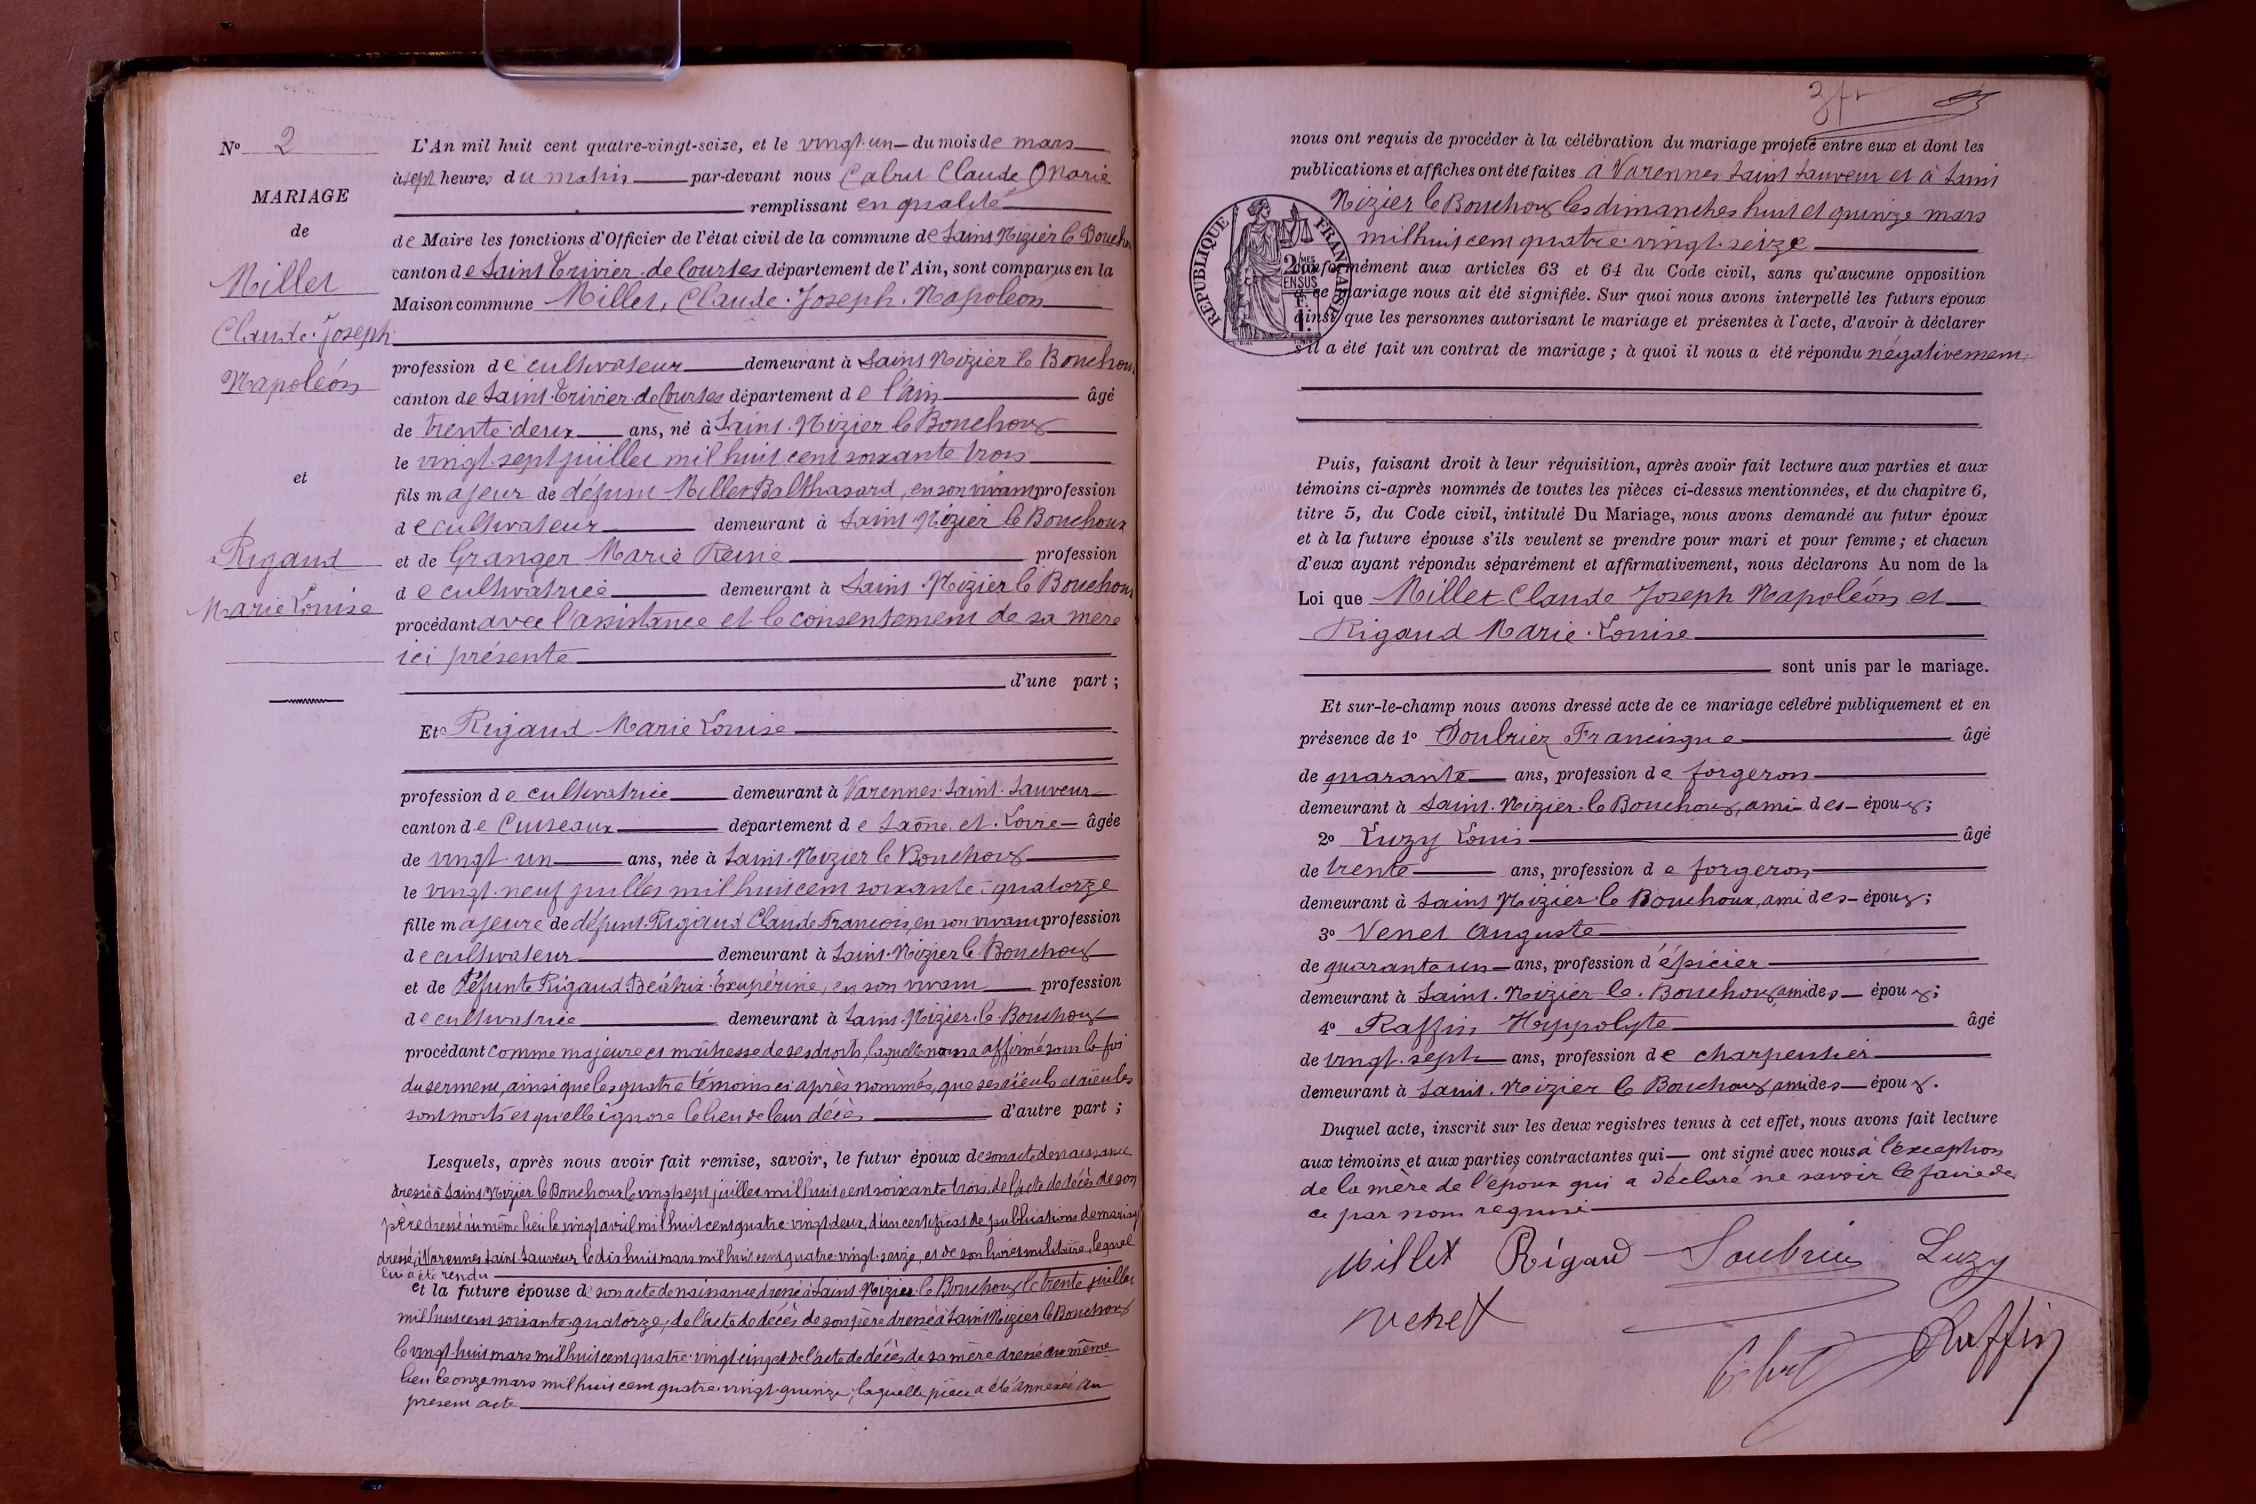 N° 2
MARIAGE
de
Millet
Claude-Joseph
Napoléon
et
Rigaud
Marie Louise
L'An mil huit cent quatre-vingt-seize, et le vingt-un du mois de mars
à sept heures du matin par-devant nous Cabut Claude Marie
remplissant en qualité
de Maire les fonctions d'Officier de l'état civil de la commune de Saint Nizier le Bouchoux
canton de Saint Trivier de Courtes département de l'Ain, sont comparus en la
Maison commune Millet, Claude Joseph Napoléon
profession de cultivateur demeurant à Saint Nizier le Bouchoux
canton de Saint-Trivier-de Courtes département de l'ain âgé
de trente-deux ans, né à Saint-Nizier le Bouchoux
le vingt-sept juillet mil huit cent soixante trois
fils majeur de défunt Millet Balthazard, en son vivant profession
de cultivateur demeurant à Saint Nizier le Bouchoux
et de Granger Marie Reine profession
de cultivatrice demeurant à Saint-Nizier le Bouchoux
procédant avec l'assistance et le consentement de sa mère
ici présente
d'une part ;
Et Rigaud Marie Louise
profession de cultivatrice demeurant à Varennes-Saint-Sauveur
canton de Cuiseaux département de Saône-et-Loire âgée
de vingt-un ans, née à Saint-Nizier le Bouchoux
le vingt-neuf juillet mil huit cent soixante-quatorze
fille majeure de défunt Rigaud Claude François, en son vivant profession
de cultivateur demeurant à Saint-Nizier le Bouchoux
et de défunte Rigaud Béatrix-Exupérine, en son vivant profession
de cultivatrice demeurant à Saint-Nizier-le-Bouchoux
procédant comme majeure et maîtresse de ses droits, laquelle nous a affirmé sous la foi
du serment, ainsi que les quatre témoins ci-après nommés, que ses aïeuls et aïeules
sont morts et qu'elle ignore le lieu de leur décès d'autre part ;
Lesquels, après nous avoir fait remise, savoir, le futur époux de son acte de naissance
dressé à Saint-Nizier le Bouchoux le vingt sept juillet mil huit cent soixante trois, de l'acte de décès de son
père dressé au même lieu le vingt avril mil huit cent quatre-vingt deux, d'un certificat de publications de mariage
dressé à Varennes Saint Sauveur le dix huit mars mil huit cent quatre-vingt-seize, et de son livret militaire, lequel
lui a été rendu
et la future épouse de son acte de naissance dressé à Saint Nizier-le Bouchoux le trente juillet
mil huit cent soixante-quatorze, de l'acte de décès de son père dressé à Saint Nizier le Bouchoux
le vingt-huit mars mil huit cent quatre-vingt cinq et de l'acte de décès de sa mère dressé au même
lieu le onze mars mil huit cent quatre-vingt-quinze, laquelle pièce a été annexée au
présent acte
3 fr
nous ont requis de procéder à la célébration du mariage projeté entre eux et dont les
publications et affiches ont été faites à Varennes Saint Sauveur et à Saint
Nizier le Bouchoux les dimanches huit et quinze mars
mil huit cent quatre-vingt-seize
RÉPUBLIQUE FRANÇAISE
2 MES
EN SUS
F.
1.
conformément aux articles 63 et 64 du Code civil, sans qu'aucune opposition
à ce mariage nous ait été signifiée. Sur quoi nous avons interpellé les futurs époux
ainsi que les personnes autorisant le mariage et présentes à l'acte, d'avoir à déclarer
s'il a été fait un contrat de mariage ; à quoi il nous a été répondu négativement
Puis, faisant droit à leur réquisition, après avoir fait lecture aux parties et aux
témoins ci-après nommés de toutes les pièces ci-dessus mentionnées, et du chapitre 6,
titre 5, du Code civil, intitulé Du Mariage, nous avons demandé au futur époux
et à la future épouse s'ils veulent se prendre pour mari et pour femme ; et chacun
d'eux ayant répondu séparément et affirmativement, nous déclarons Au nom de la
Loi que Millet Claude Joseph Napoléon et
Rigaud Marie-Louise
sont unis par le mariage.
Et sur-le-champ nous avons dressé acte de ce mariage célébré publiquement et en
présence de 1° Soubriez Francisque âgé
de quarante ans, profession de forgeron
demeurant à Saint-Nizier-le Bouchoux, ami des époux ;
2° Luzy Louis âgé
de trente ans, profession de forgeron
demeurant à Saint Nizier le Bouchoux, ami des époux ;
3° Venet Auguste
de quarante un ans, profession d'épicier
demeurant à Saint-Nizier le-Bouchoux, ami des époux ;
4° Raffin Hyppolyte âgé
de vingt-sept ans, profession de charpentier
demeurant à Saint-Nizier le Bouchoux, ami des époux.
Duquel acte, inscrit sur les deux registres tenus à cet effet, nous avons fait lecture
aux témoins et aux parties contractantes qui ont signé avec nous à l'exception
de la mère de l'époux qui a déclaré ne savoir le faire de
ce par nous requise
Millet Rigaud Soubriez Luzy
Venet
Cabut Raffin